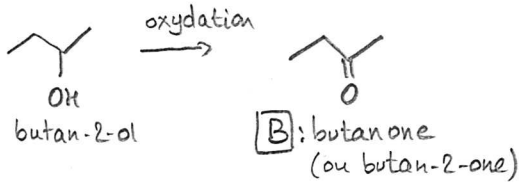 oxydation
OH
O
butan-2-ol
B : butanone
(ou butan-2-one)